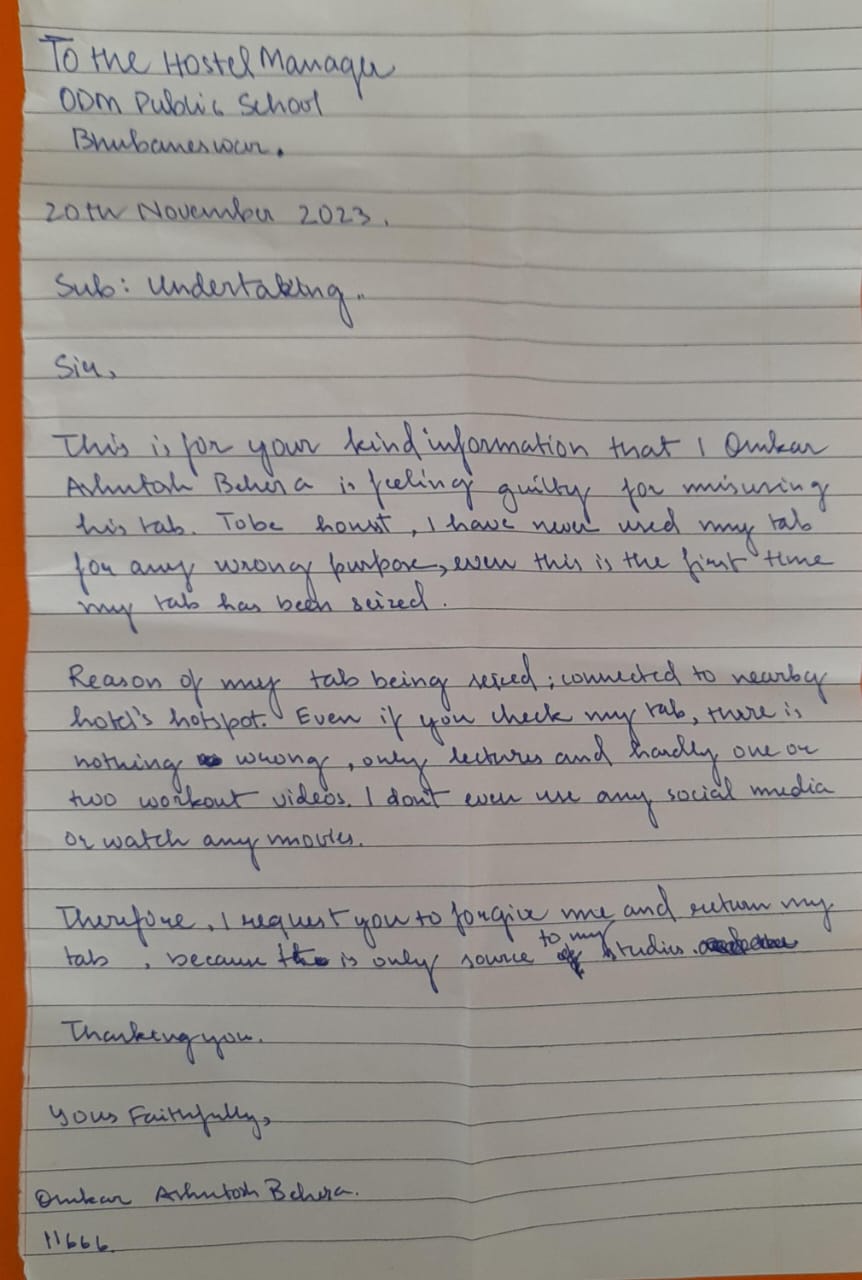 To the Hostel Manager
ODM Public School
Bhubaneswar.
20th November 2023.
Sub: Undertaking.
Sir,
This is for your kind information that I Omkar
Ashutosh Behera is feeling guilty for misusing
his tab. To be honest, I have never used my tab
for any wrong purpose, even this is the first time
my tab has been seized.
Reason of my tab being seized; connected to nearby
hotel's hotspot. Even if you check my tab, there is
nothing wrong, only lectures and hardly one or
two workout videos. I don't even use any social media
or watch any movies.
Therefore, I request you to forgive me and return my
tab, because is only source to my studies.
Thanking you.
Yours Faithfully,
Omkar Ashutosh Behera.
11666.